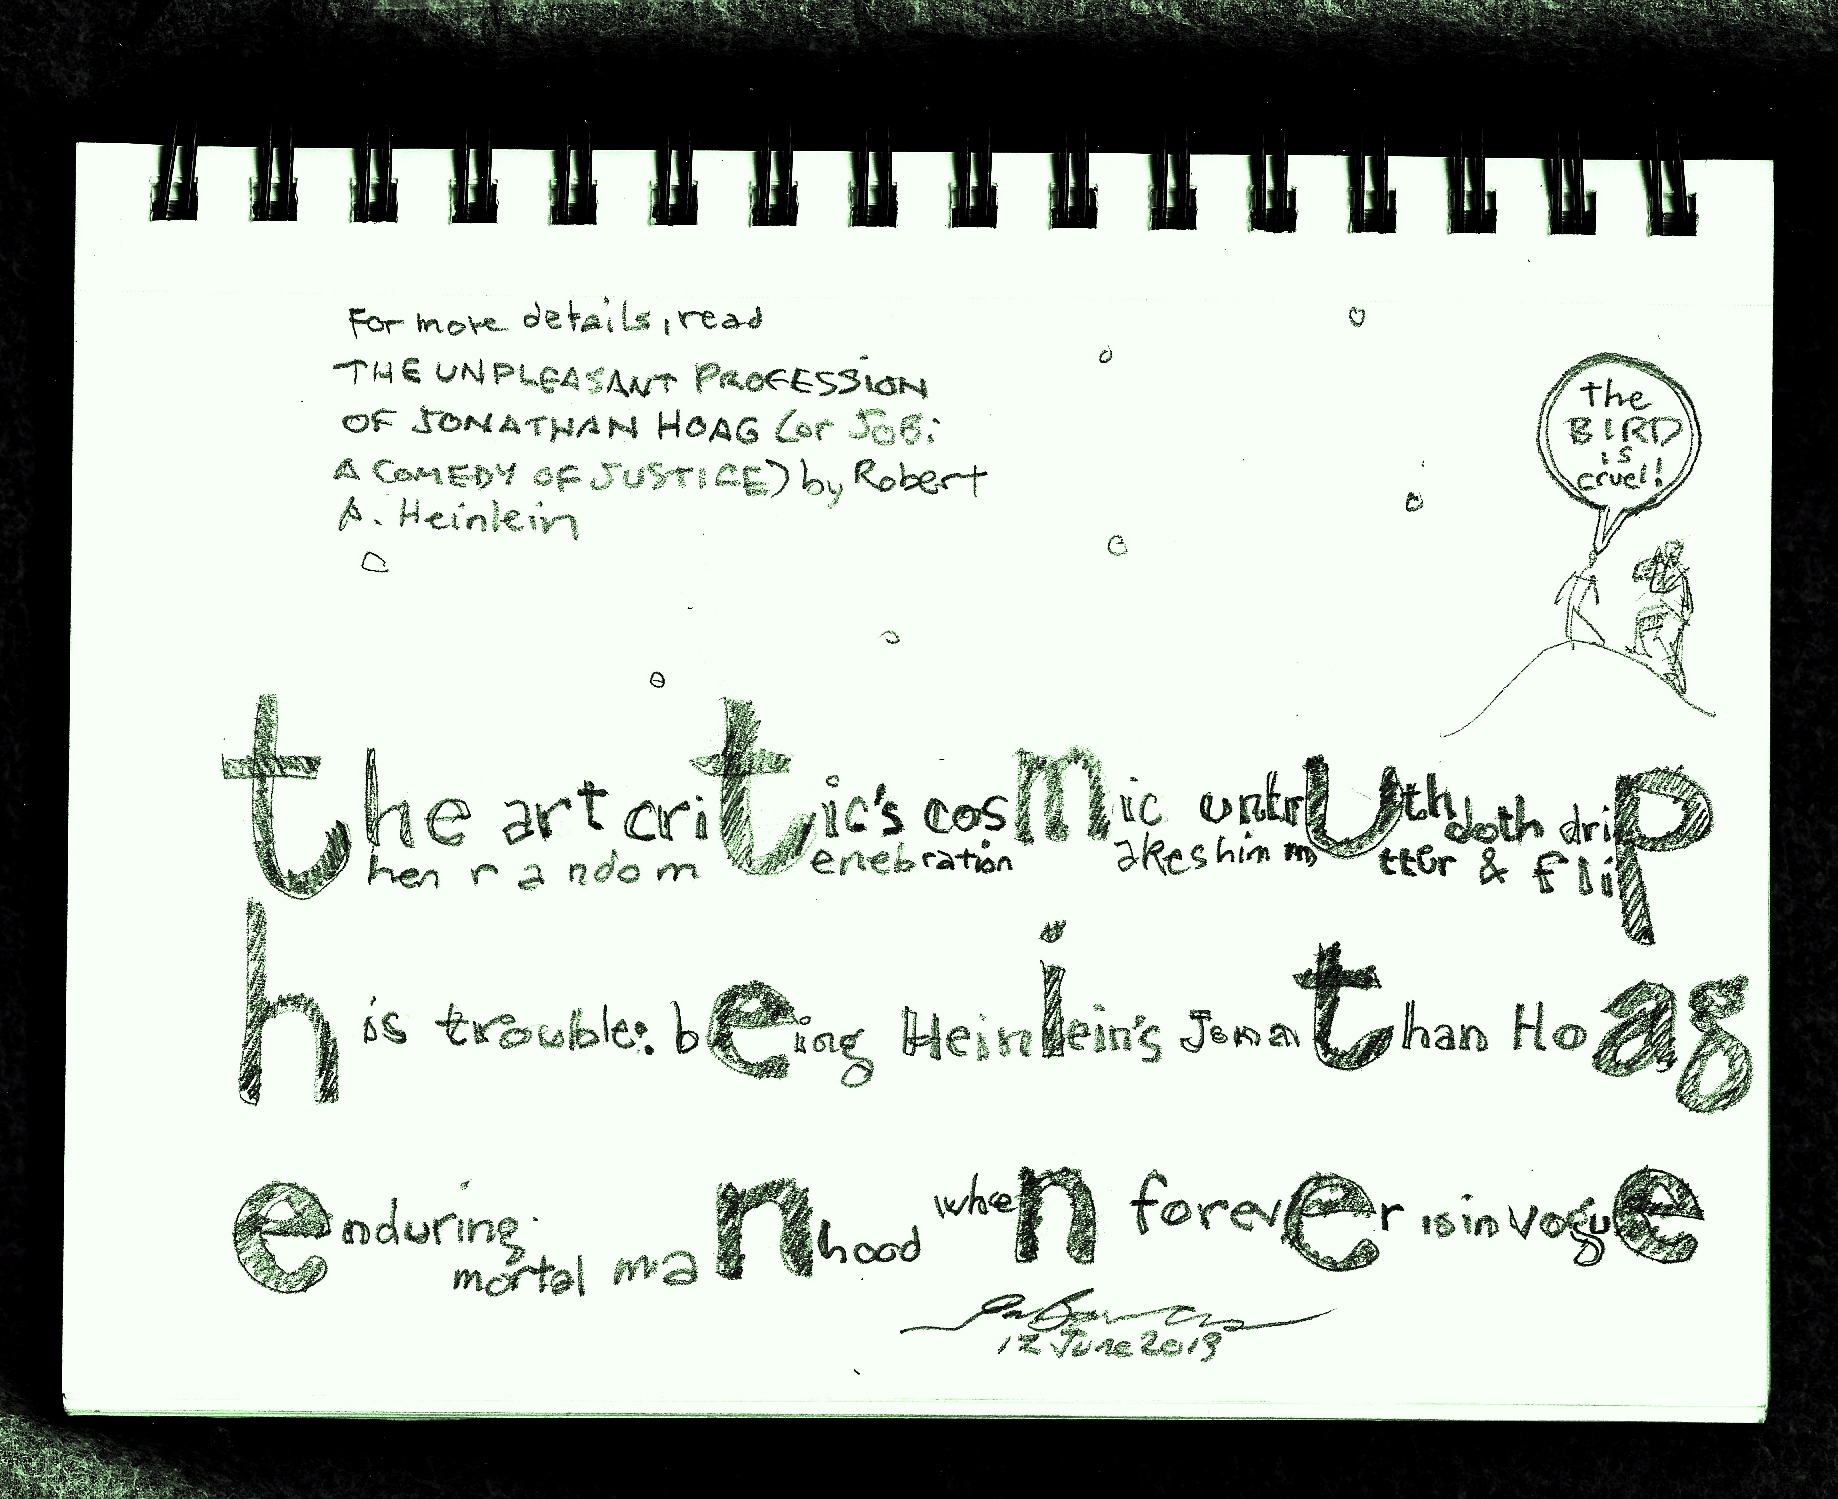 For more details, read
THE UNPLEASANT PROFESSION
OF JONATHAN HOAG (or JOB:
A COMEDY OF JUSTICE) by Robert
A. Heinlein
the
BIRD
is
cruel!
the art critic's cosmic untruth doth drip
hen random enebration akeshimm utter & flip
his trouble: being Heinlein's Jonathan Hoag
enduring mortal manhood when forever is in vogue
12 June 2019